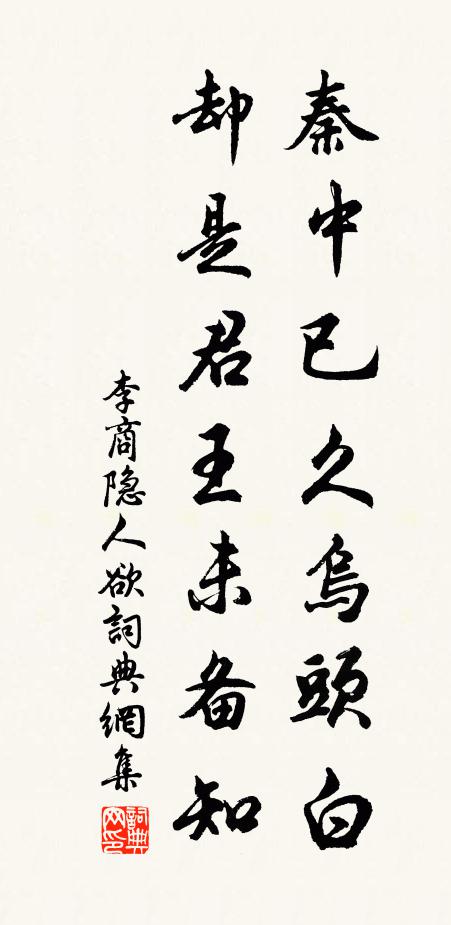 秦中已久烏頭白
却是君王未备知
李商隐人欲詞典網集
詞典网印